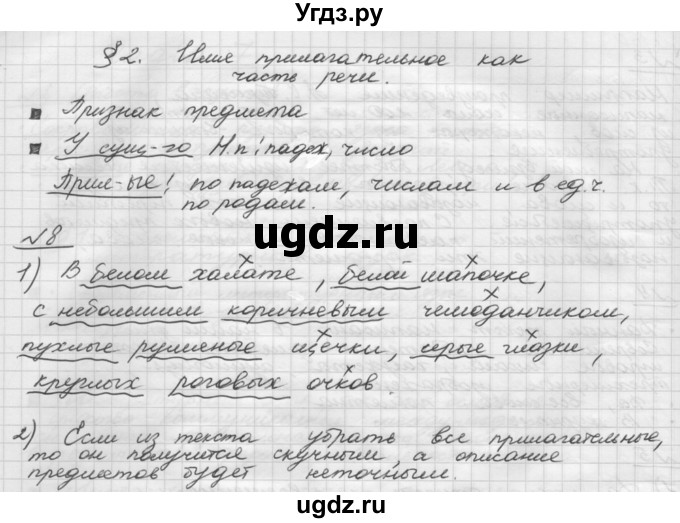 Угдз.ру
§2. Имя прилагательное как
часть речи.
Признак предмета
У сущ-го И.п! падеж, число
Прил-ые! по падежам, числам и в ед.ч.
по родам.
№8
ugdz.ru
1) В белом халате, белой шапочке,
с небольшим коричневым чемоданчиком,
пухлые румяные щёчки, серые глазки,
круглых роговых очков.
ugdz.ru
2) Если из текста убрать все прилагательные,
то он получится скучным, а описание
предметов будет неточным.
ugdz.ru